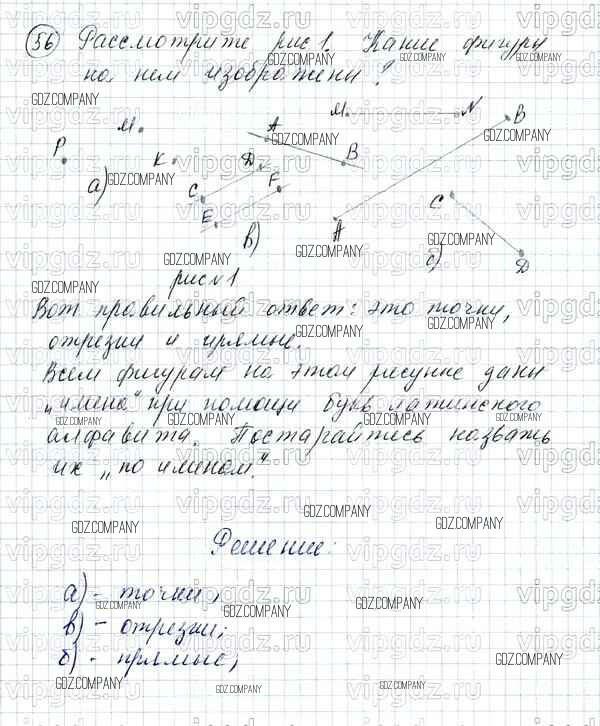 56 Рассмотрите рис 1. Какие фигуры
на нем изображены?
M
A
M N
B
P
K
D
B
C
F
C
а)
E
в)
A
с)
D
рис № 1
Вот правильный ответ: это точки,
отрезки и прямые.
Всем фигурам на этом рисунке даны
„имена“ при помощи букв латинского
алфавита. Постарайтесь назвать
их „по именам“.
Решение:
а) - точки,
в) - отрезки;
б) - прямые;
vipgdz.com
GDZ.COMPANY